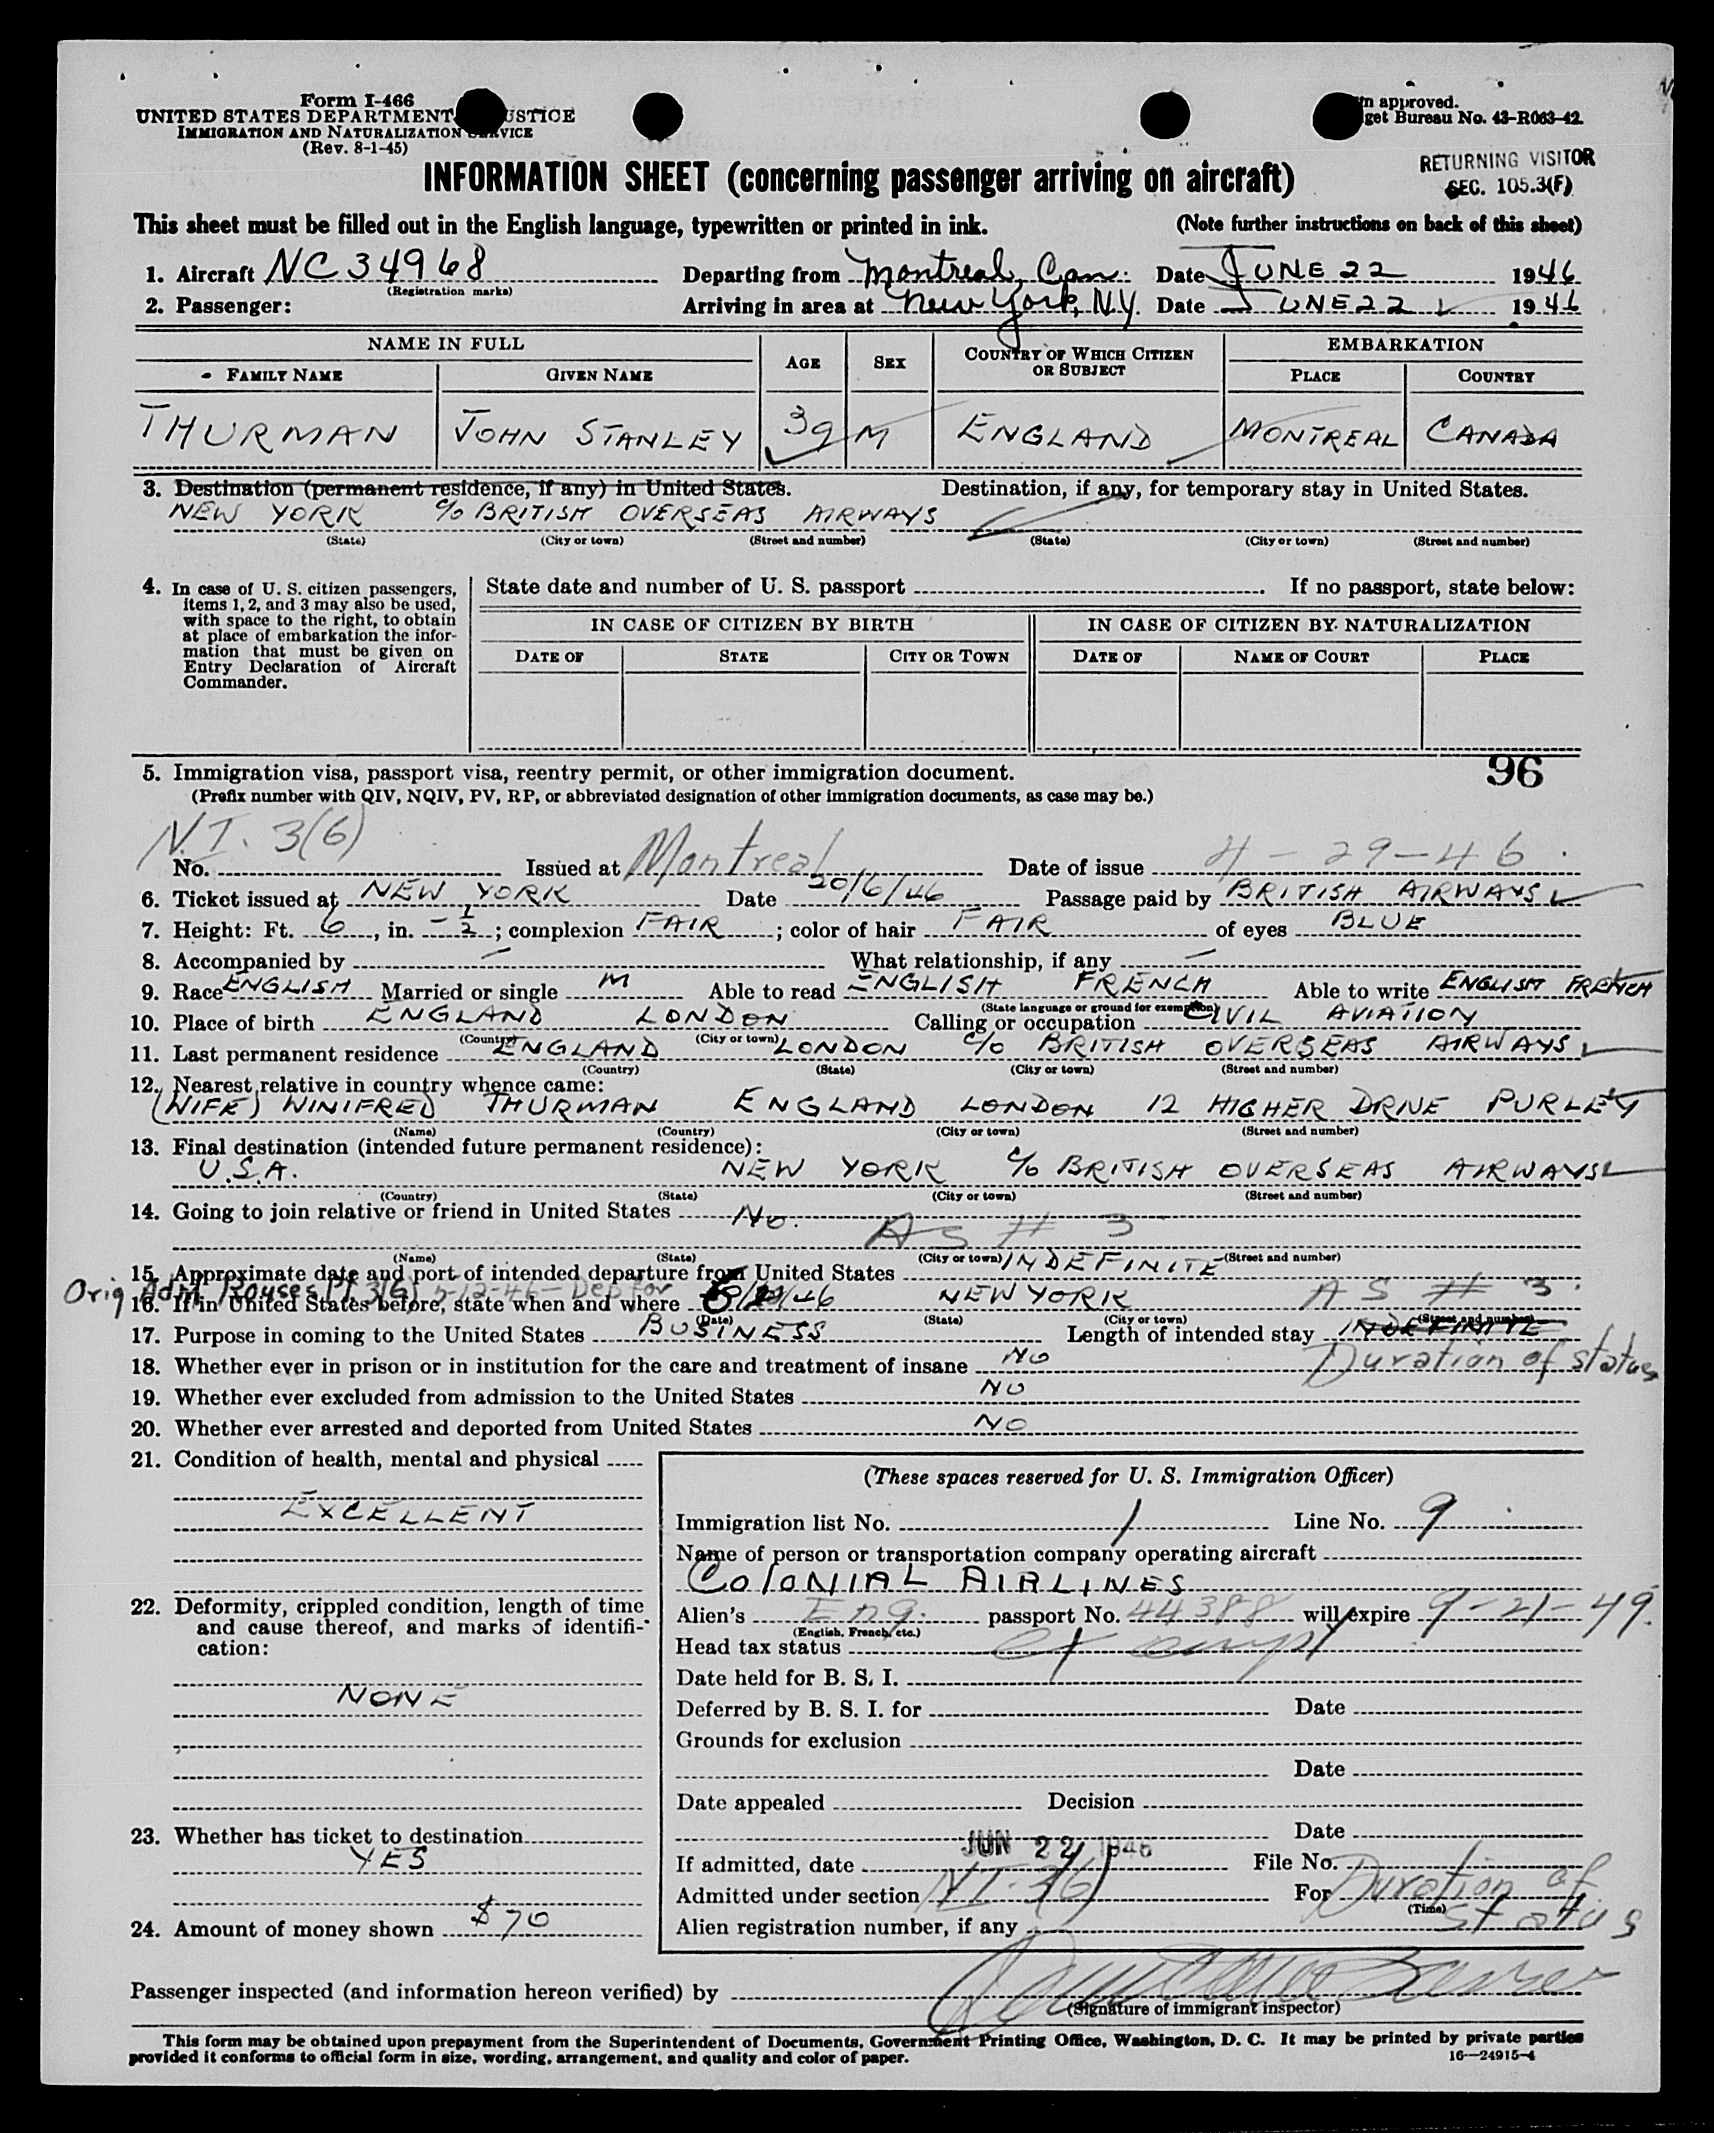 Form I-466
UNITED STATES DEPARTMENT USTICE
IMMIGRATION AND NATURALIZATION SERVICE
(Rev. 8-1-45)
n approved.
get Bureau No. 43-R063-42.
RETURNING VISITOR
SEC. 105.3(F)
INFORMATION SHEET (concerning passenger arriving on aircraft)
This sheet must be filled out in the English language, typewritten or printed in ink. (Note further instructions on back of this sheet)
1. Aircraft NC34968 Departing from Montreal, Can. Date JUNE 22 1946
(Registration marks)
2. Passenger: Arriving in area at New York, N.Y. Date JUNE 22 1946
NAME IN FULL AGE SEX COUNTRY OF WHICH CITIZEN OR SUBJECT EMBARKATION
FAMILY NAME GIVEN NAME PLACE COUNTRY
THURMAN JOHN STANLEY 39 M ENGLAND MONTREAL CANADA
3. Destination (permanent residence, if any) in United States. Destination, if any, for temporary stay in United States.
NEW YORK c/o BRITISH OVERSEAS AIRWAYS
(State) (City or town) (Street and number) (State) (City or town) (Street and number)
4. In case of U. S. citizen passengers, items 1, 2, and 3 may also be used, with space to the right, to obtain at place of embarkation the information that must be given on Entry Declaration of Aircraft Commander.
State date and number of U. S. passport . If no passport, state below:
IN CASE OF CITIZEN BY BIRTH IN CASE OF CITIZEN BY NATURALIZATION
DATE OF STATE CITY OR TOWN DATE OF NAME OF COURT PLACE
96
5. Immigration visa, passport visa, reentry permit, or other immigration document.
(Prefix number with QIV, NQIV, PV, RP, or abbreviated designation of other immigration documents, as case may be.)
N.I. 3(6)
No. Issued at Montreal Date of issue 4-29-46
6. Ticket issued at NEW YORK Date 20/6/46 Passage paid by BRITISH AIRWAYS
7. Height: Ft. 6, in. - 1/2; complexion FAIR; color of hair FAIR of eyes BLUE
8. Accompanied by - What relationship, if any -
9. Race ENGLISH Married or single M Able to read ENGLISH FRENCH Able to write ENGLISH FRENCH
(State language or ground for exemption)
10. Place of birth ENGLAND LONDON Calling or occupation CIVIL AVIATION
(Country) (City or town)
11. Last permanent residence ENGLAND LONDON c/o BRITISH OVERSEAS AIRWAYS
(Country) (State) (City or town) (Street and number)
12. Nearest relative in country whence came:
(WIFE) WINIFRED THURMAN ENGLAND LONDON 12 HIGHER DRIVE PURLEY
(Name) (Country) (City or town) (Street and number)
13. Final destination (intended future permanent residence):
U.S.A. NEW YORK c/o BRITISH OVERSEAS AIRWAYS
(Country) (State) (City or town) (Street and number)
14. Going to join relative or friend in United States No.
AS # 3
(Name) (State) (City or town) (Street and number)
15. Approximate date and port of intended departure from United States INDEFINITE
Orig Adm Rouses Pt 3(6) 5-12-46 - Dep for
16. If in United States before, state when and where /46 NEW YORK AS # 3
(Date) (State) (City or town) (Street and number)
17. Purpose in coming to the United States BUSINESS Length of intended stay INDEFINITE
Duration of status
18. Whether ever in prison or in institution for the care and treatment of insane NO
19. Whether ever excluded from admission to the United States NO
20. Whether ever arrested and deported from United States NO
21. Condition of health, mental and physical
EXCELLENT
22. Deformity, crippled condition, length of time and cause thereof, and marks of identification:
NONE
23. Whether has ticket to destination
YES
24. Amount of money shown $70
(These spaces reserved for U. S. Immigration Officer)
Immigration list No. 1 Line No. 9
Name of person or transportation company operating aircraft
COLONIAL AIRLINES
Alien's Eng. passport No. 44388 will expire 9-21-49.
(English, French, etc.)
Head tax status exempt
Date held for B. S. I.
Deferred by B. S. I. for Date
Grounds for exclusion
Date
Date appealed Decision
Date
If admitted, date JUN 22 1946 File No.
Admitted under section NI-3(6) For Duration of status
(Time)
Alien registration number, if any
Passenger inspected (and information hereon verified) by
(Signature of immigrant inspector)
This form may be obtained upon prepayment from the Superintendent of Documents, Government Printing Office, Washington, D. C. It may be printed by private parties
provided it conforms to official form in size, wording, arrangement, and quality and color of paper. 16—24915-4